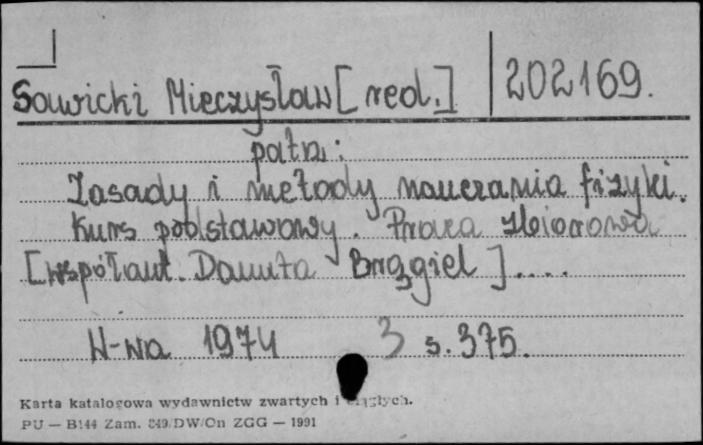 Sawicki Mieczysław [red.] 202169.
patrz:
Zasady i metody nauczania fizyki.
Kurs podstawowy. Praca zbiorowa
[współaut. Danuta Brzągiel]....
W-wa 1974 3 s. 375.
Karta katalogowa wydawnictw zwartych i ciągłych.
PU — B144 Zam. 849/DW/On ZGG — 1991